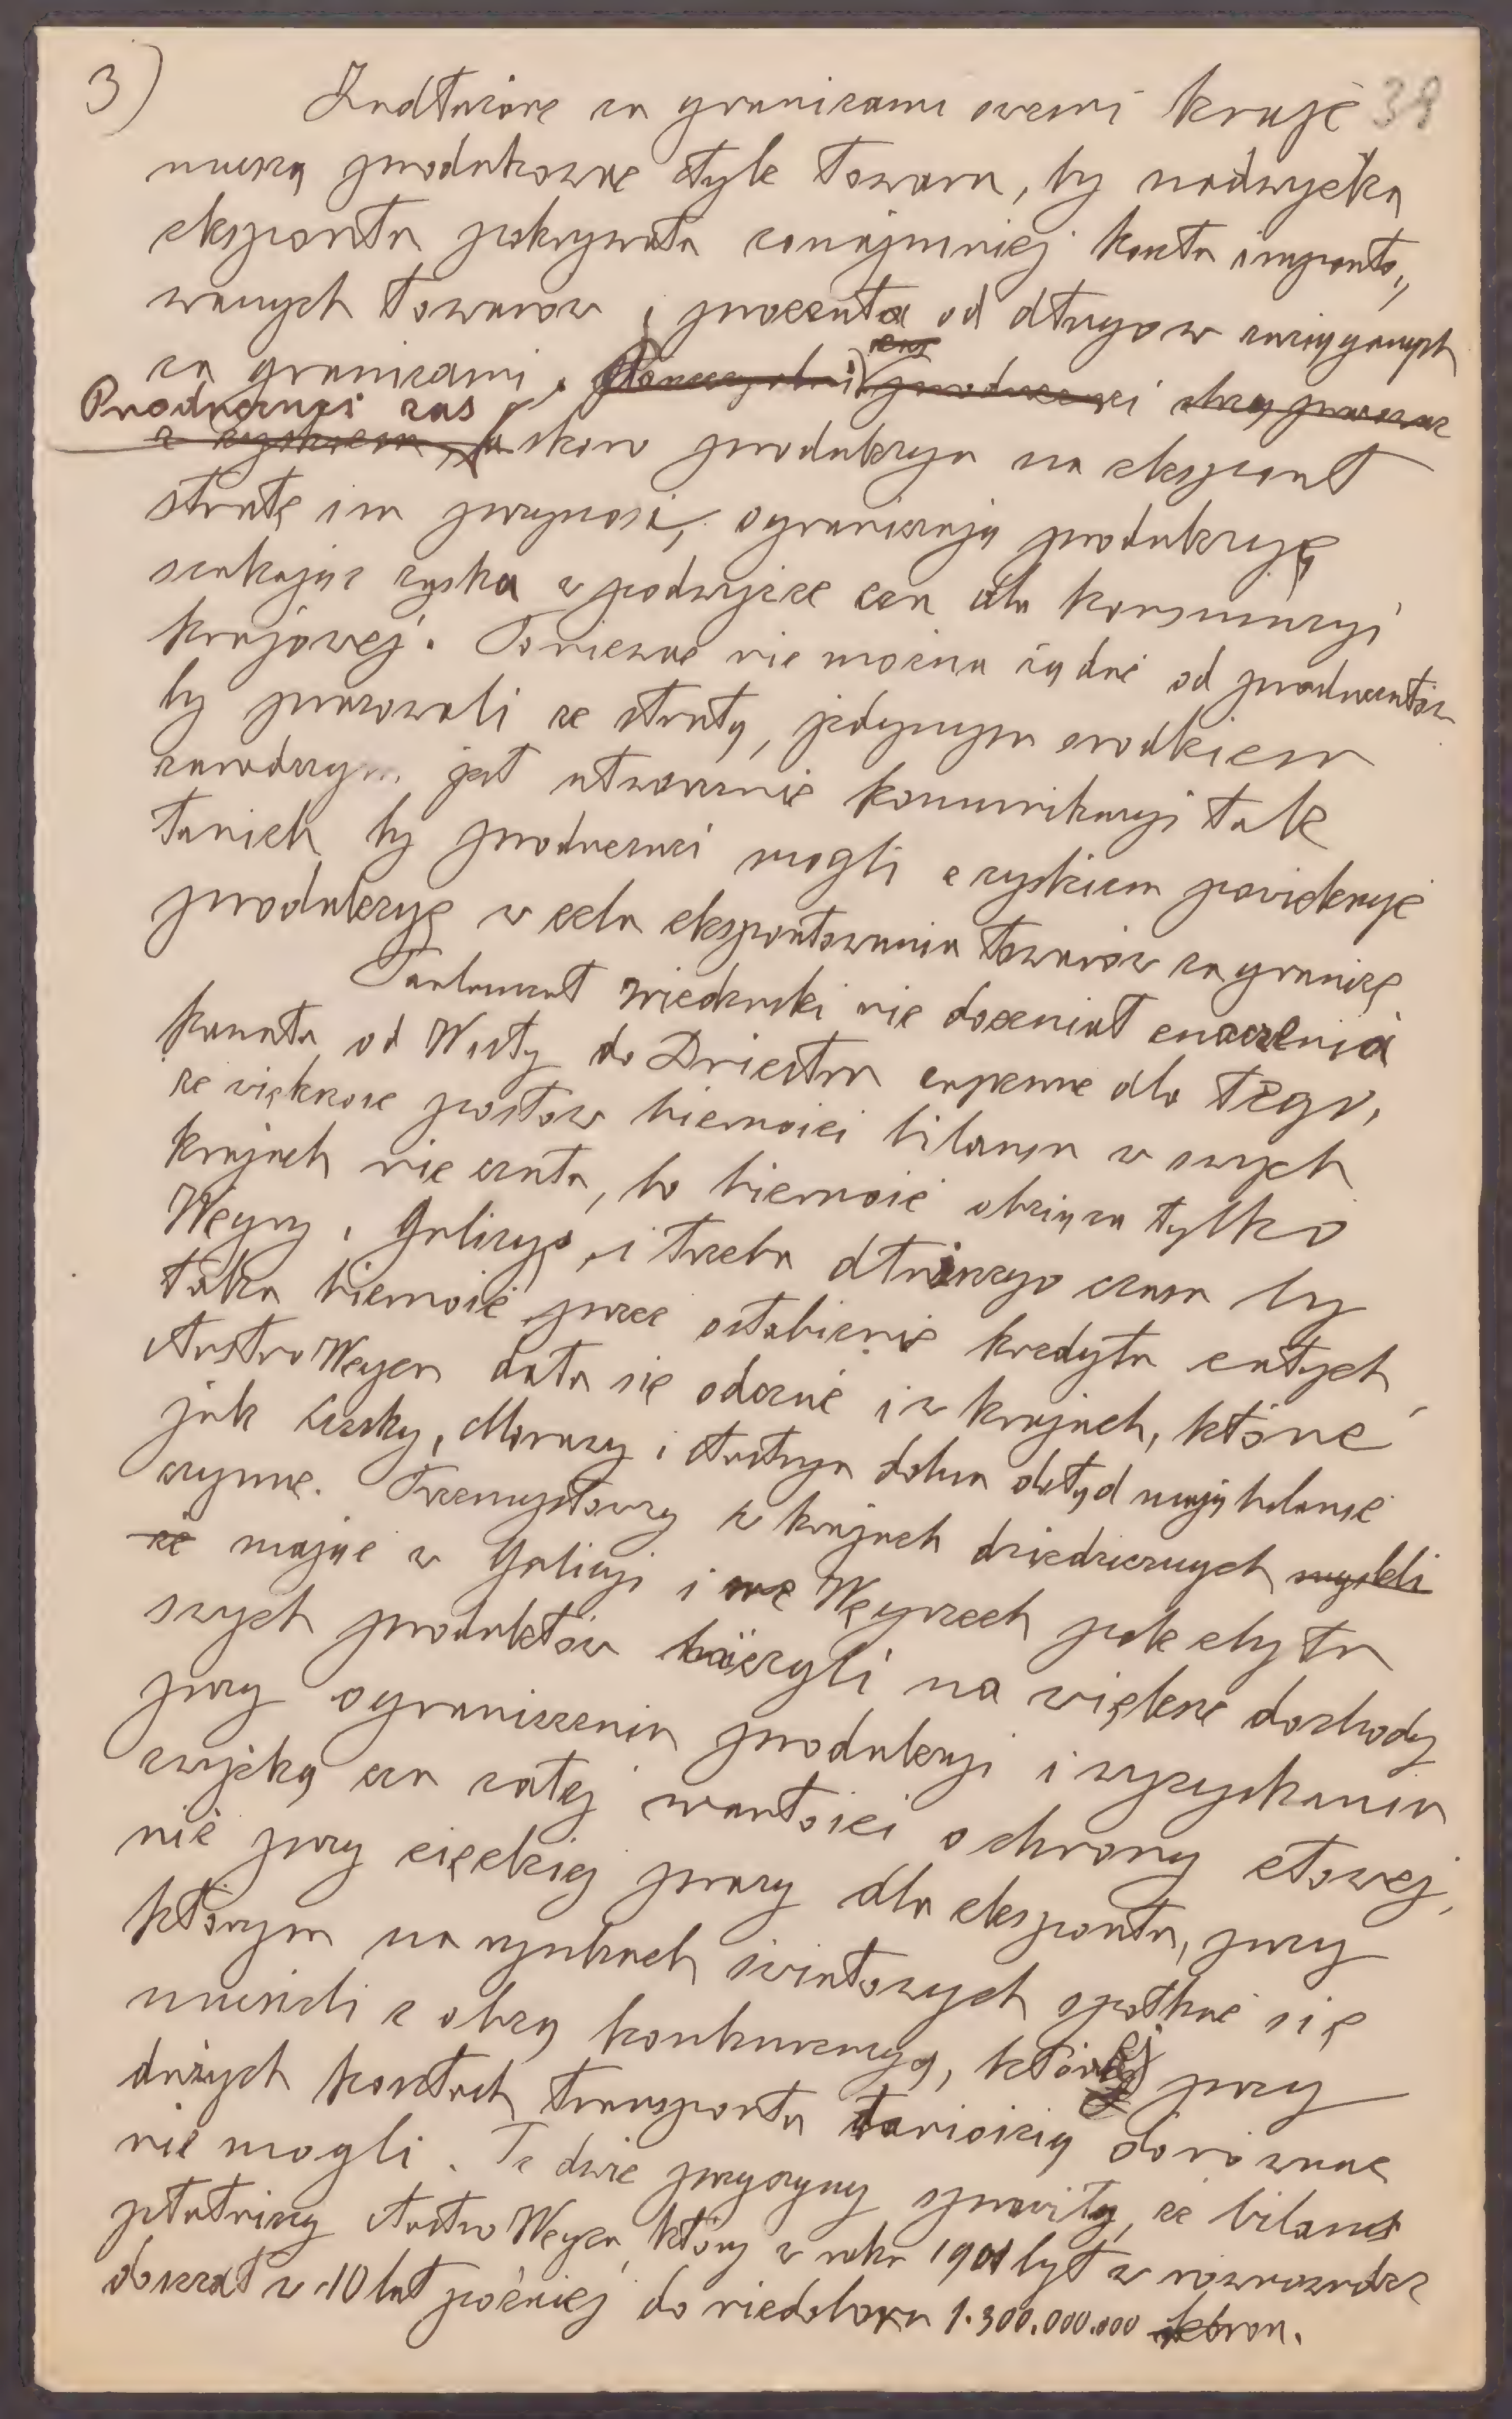 3) Zadłużone za granicami swemi kraje 39
muszą produkować tyle towaru, by nadwyżka
eksportu pokrywała conajmniej koszta importo„
wanych towarow i procenta od długow zaciąganych
za granicami.
Producenci zas skoro produkcya na eksport
stratę im przynosi, ograniczają produkcyję
szukając zysku w podwyżce cen dla konsumcyi
krajowej. Ponieważ nie można żądać od producentów
by pracowali ze stratą, jedynym srodkiem
zaradczym jest utworzenie komunikacyi tak
tanich by producenci mogli z zyskiem powiekszyć
produkcyę w celu eksportowania towarów za granicę
Parlament wiedeński nie doceniał znaczenia
kanału od Wisły do Dniestru zapewne dla tego,
ze większosc posłow bierności bilansu w swych
krajach nie czuła, bo bierność obciąża tylko
Węgry i Galicyę, i trzeba dłuższego czasu by
taka bierność przez osłabienie kredytu całych
Austro Węgier dała się odczuć i w krajach, które
jak Czechy, Morawy i Austrya dolna dotyd mają bilanse
czynne. Przemysłowcy w krajach dziedzicznych myśleli
że mając w Galicyi i we Węgrzech pole zbytu
swych produktów liczyli na większe dochody
przy ograniczeniu produkcyi i wyzyskaniu
zwyżką cen całej wartości ochrony cłowej,
niż przy ciężkiej pracy dla eksportu, przy
którym na rynkach światowych spotkać się
musieli z obcą konkurencyą, której przy
dużych kosztach transportu taniością dorównać
nie mogli. Te dwie przyczyny sprawiły, że bilans
płatniczy Austro Węgier, który w roku 1901 był w rownowadze
doszedł w 10 lat później do niedoboru 1.300.000.000 kron.